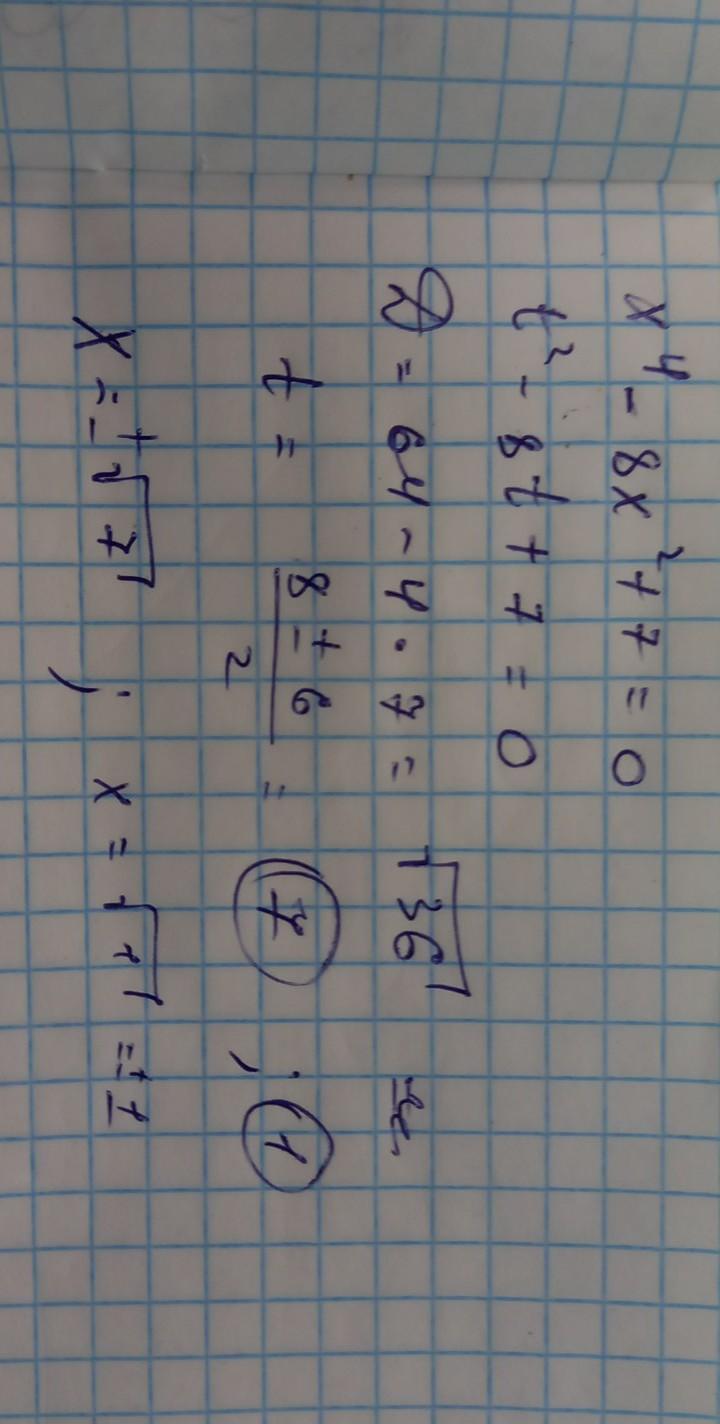 x⁴ - 8x² + 7 = 0
t² - 8t + 7 = 0
D = 64 - 4 · 7 = √36
t = (8 ± 6)/2 = 7 ; 1
x = ±√7 ; x = √1 = ±1